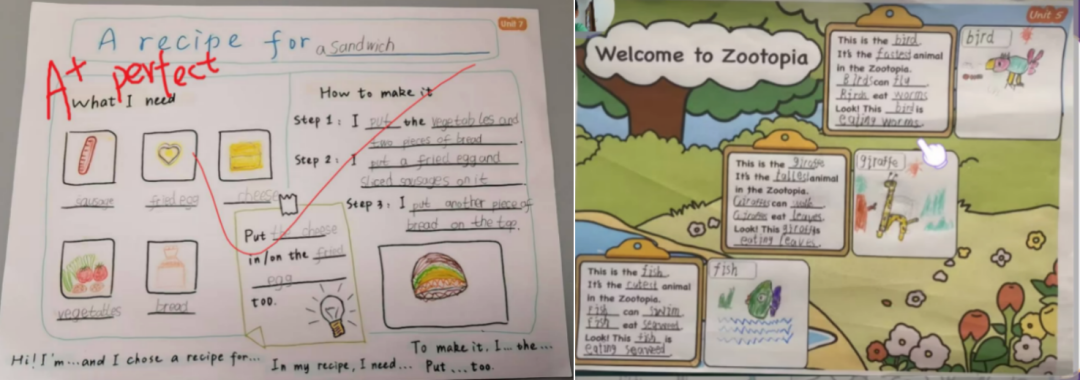 Unit 7
A recipe for a sandwich
A+ perfect
What I need
sausage
fried egg
cheese
vegetables
bread
How to make it
Step 1: I put the vegetables and
two pieces of bread.
Step 2: I put a fried egg and
sliced sausages on it
Step 3: I put another piece of
bread on the top.
Put the cheese
in/on the fried
egg
too.
Hi! I'm...and I chose a recipe for...
In my recipe, I need...
To make it, I... the...
Put...too.
Unit 5
Welcome to Zootopia
This is the bird.
It's the fastest animal
in the Zootopia.
Birds can fly
Birds eat worms
Look! This bird is
eating worms.
bird
This is the giraffe
It's the tallest animal
in the Zootopia.
Giraffes can walk
Giraffes eat leaves
Look! This giraffe is
eating leaves.
giraffe
This is the fish.
It's the cutest animal
in the Zootopia.
Fish can swim.
Fish eat seaweed
Look! This fish is
eating seaweed
fish